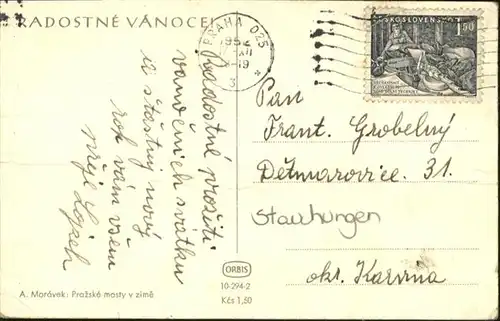 RADOSTNÉ VÁNOCE
PRAHA 025
XII
-19
3
ČESKOSLOVENSKO
1,50
Radostné prožití
vánočních svátků
a šťastný nový
rok vám všem
přeje Lojzek
Pan
Frant. Grobelný
Dětmarovice 31.
Stauhungen
okr. Karviná
ORBIS
10-294-2
Kčs 1,50
A. Morávek: Pražské mosty v zimě